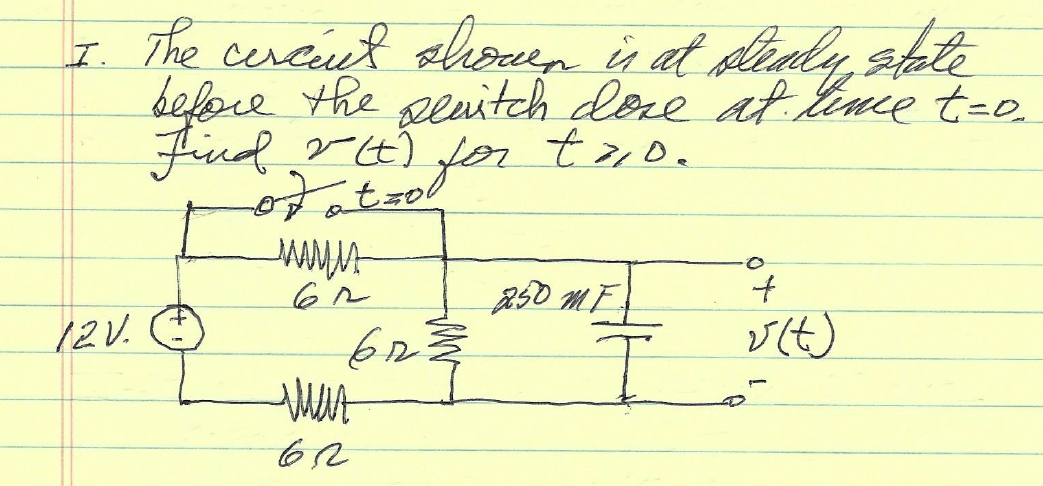 I. The circuit shown is at steady state
before the switch close at time t=0.
Find v(t) for t ≥ 0.
t=0
6Ω
250 mF
+
12V.
+
-
6Ω
v(t)
-
6Ω